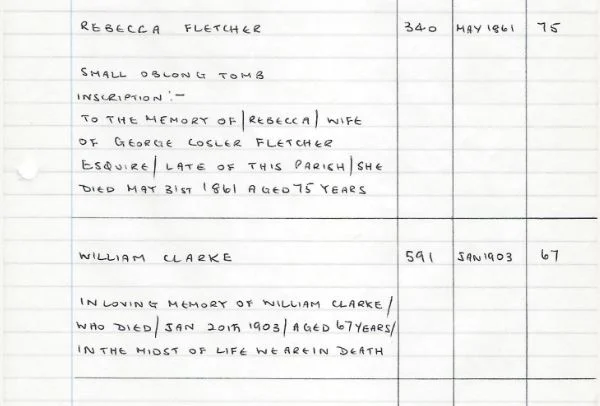 REBECCA FLETCHER 340 MAY 1861 75
SMALL OBLONG TOMB
INSCRIPTION :-
TO THE MEMORY OF / REBECCA / WIFE
OF GEORGE COSLER FLETCHER
ESQUIRE / LATE OF THIS PARISH / SHE
DIED MAY 31ST 1861 AGED 75 YEARS
WILLIAM CLARKE 591 JAN 1903 67
IN LOVING MEMORY OF WILLIAM CLARKE /
WHO DIED / JAN 20TH 1903 / AGED 67 YEARS /
IN THE MIDST OF LIFE WE ARE IN DEATH